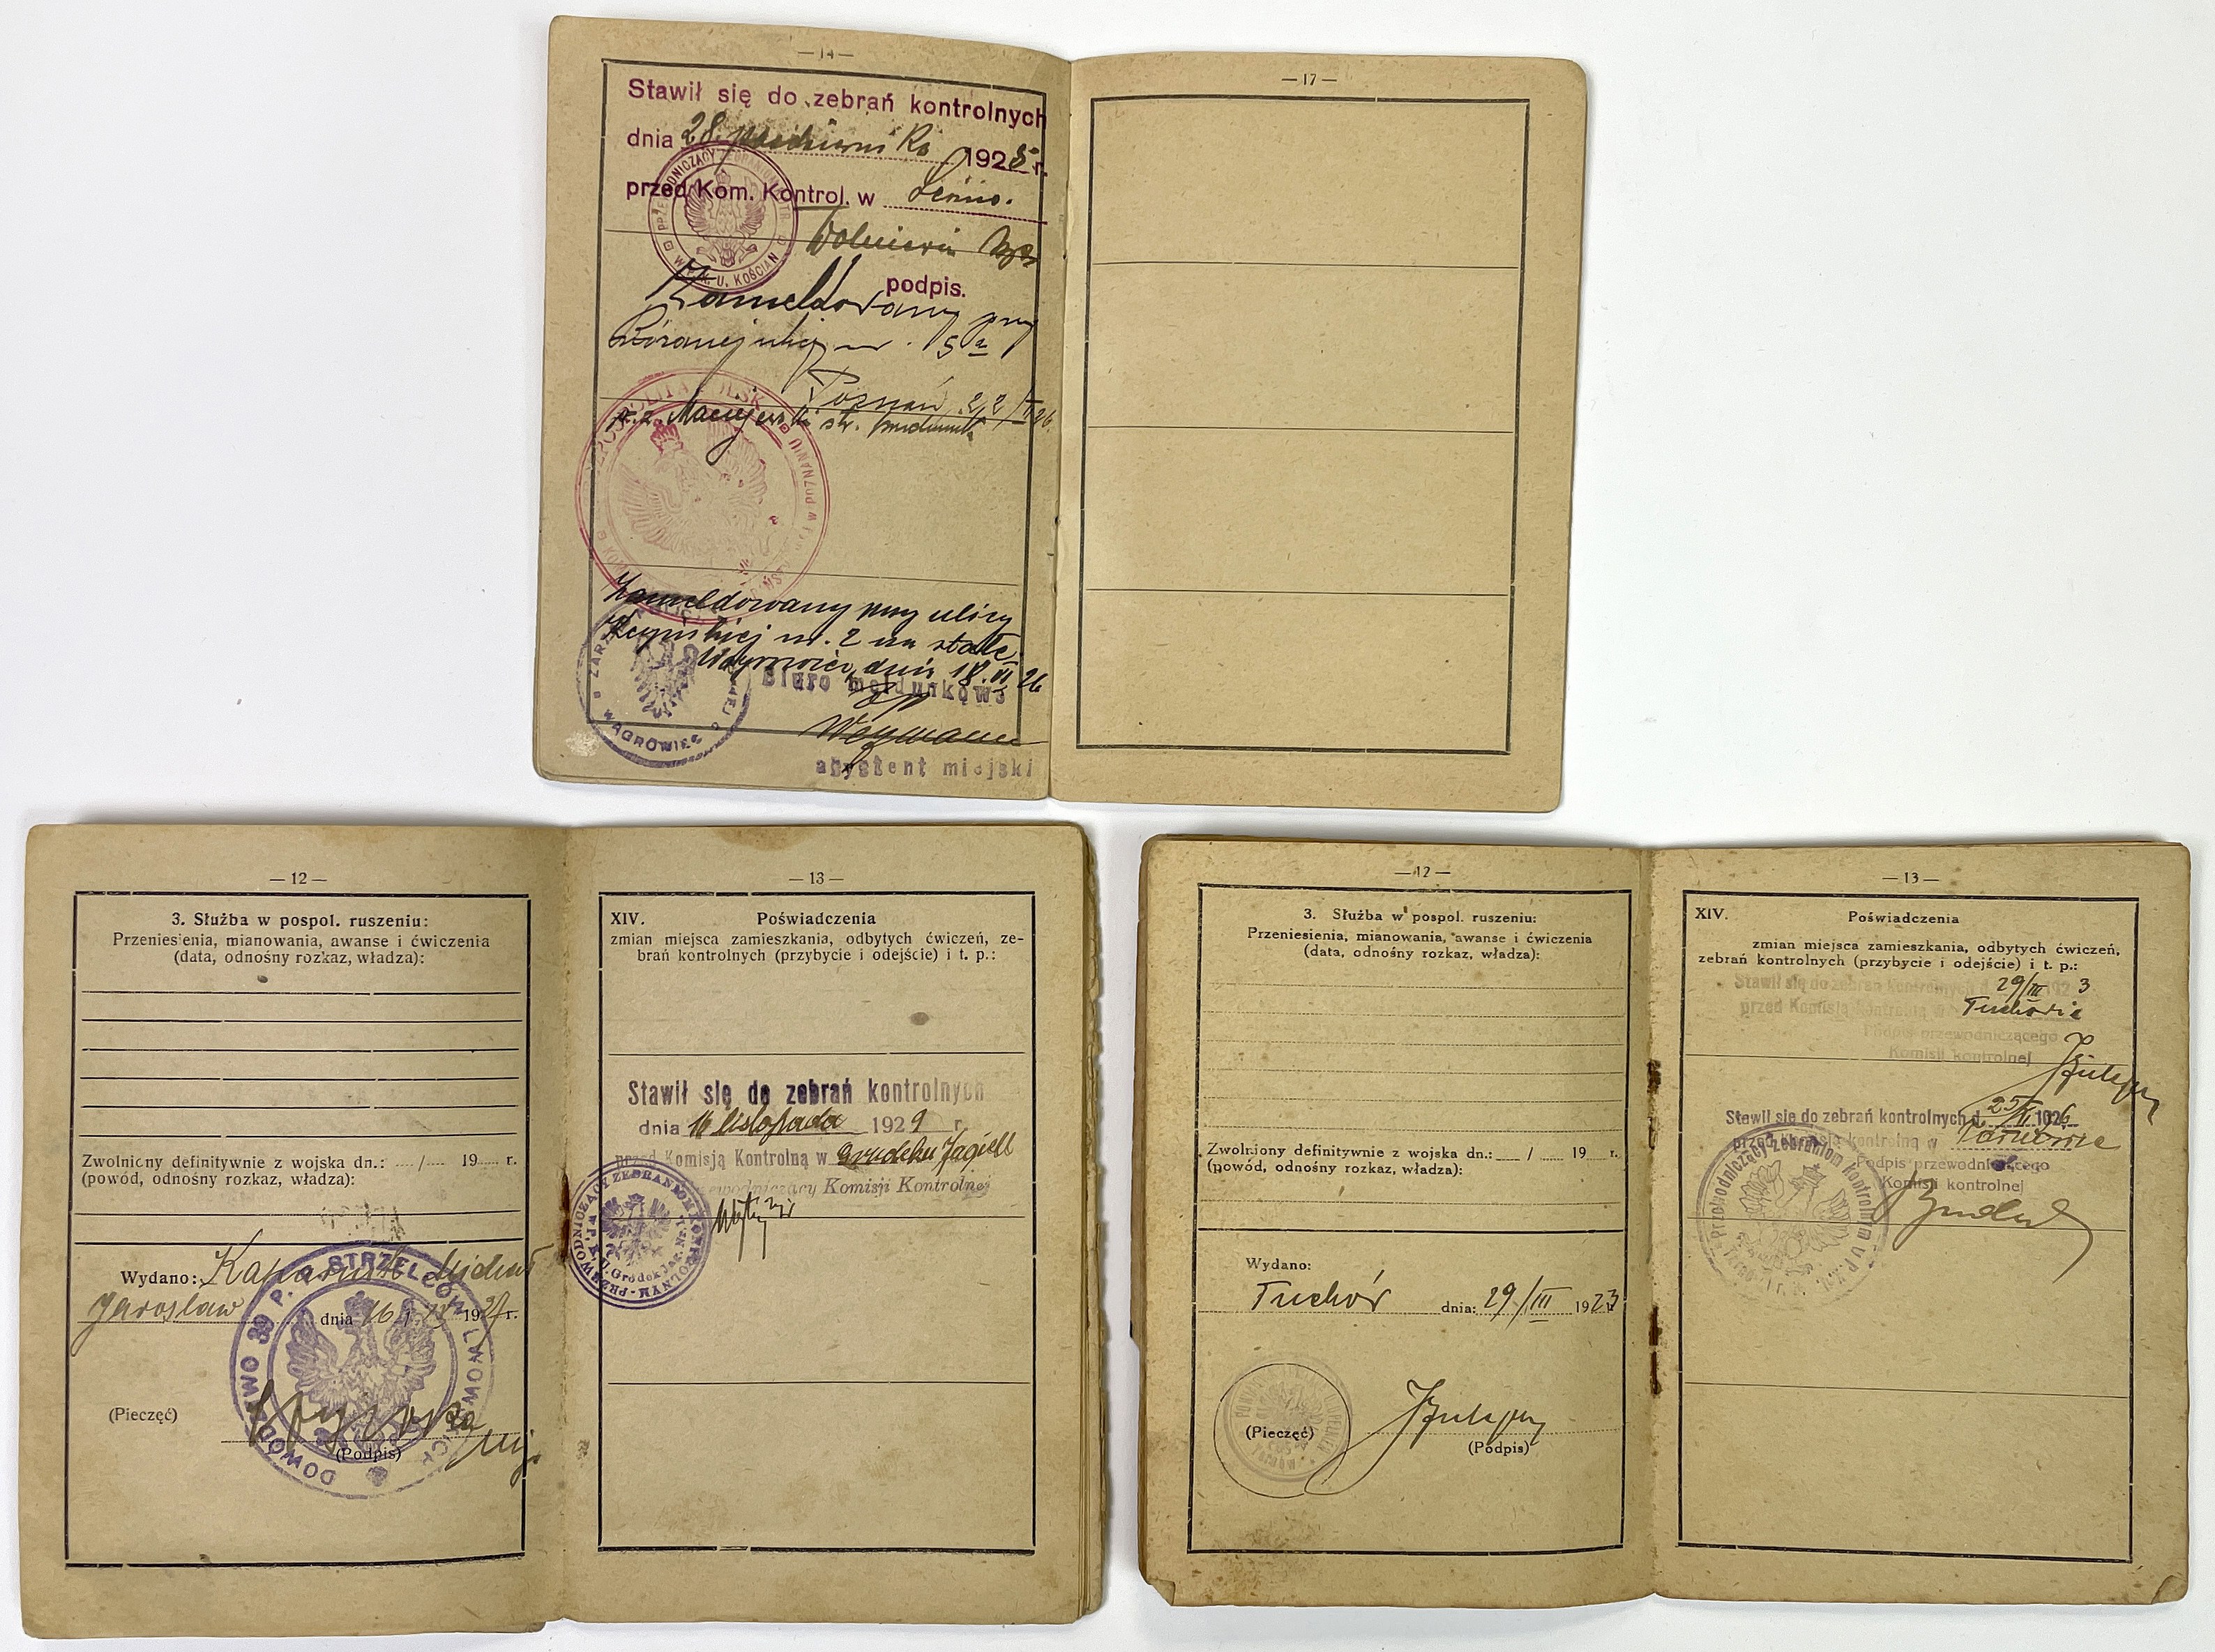 — 14 —
Stawił się do zebrań kontrolnych
dnia 28 października 1925 r.
przed Kom. Kontrol. w
W. P. K. U. KOŚCIAN
podpis.
Zameldowany przy
Różanej ulicy nr. 5a
Poznań 22/
Maciejewski st.
W POZNANIU
Zameldowany przy ulicy
Kcyńskiej nr. 2 na stałe
Wągrowiec, dnia 18. 26
Biuro meldunkowe
WĄGROWIEC
Weymann
asystent miejski
— 17 —
— 12 —
3. Służba w pospol. ruszeniu:
Przeniesienia, mianowania, awanse i ćwiczenia
(data, odnośny rozkaz, władza):
Zwolniony definitywnie z wojska dn.: / 19 r.
(powód, odnośny rozkaz, władza):
Wydano:
Jarosław dnia 16 19 r.
DOWÓDZTWO 39 P. STRZELCÓW LWOWSKICH
(Pieczęć)
(Podpis)
— 13 —
XIV. Poświadczenia
zmian miejsca zamieszkania, odbytych ćwiczeń, ze-
brań kontrolnych (przybycie i odejście) i t. p.:
Stawił się do zebrań kontrolnych
dnia 16 listopada 1929 r.
przed Komisją Kontrolną w Gródeku Jagiell
Przewodniczący Komisji Kontrolnej
PRZEWODNICZĄCY ZEBRANIOM KONTROLNYM
P. K. U. Gródek Jag. Nr. 1
— 12 —
3. Służba w pospol. ruszeniu:
Przeniesienia, mianowania, awanse i ćwiczenia
(data, odnośny rozkaz, władza):
Zwolniony definitywnie z wojska dn.: / 19 r.
(powód, odnośny rozkaz, władza):
Wydano:
Tuchów dnia: 29/III 1923
(Pieczęć)
(Podpis)
— 13 —
XIV. Poświadczenia
zmian miejsca zamieszkania, odbytych ćwiczeń,
zebrań kontrolnych (przybycie i odejście) i t. p.:
Stawił się do zebrań kontrolnych d. 29/III 1923
przed Komisją kontrolną w Tuchowie
Podpis przewodniczącego
Komisji kontrolnej
Stawił się do zebrań kontrolnych d. 25/ 1926
przed Komisją kontrolną w Tarnowie
Podpis przewodniczącego
Komisji kontrolnej
Przewodniczący Zebraniom Kontrolnym P.K.U.